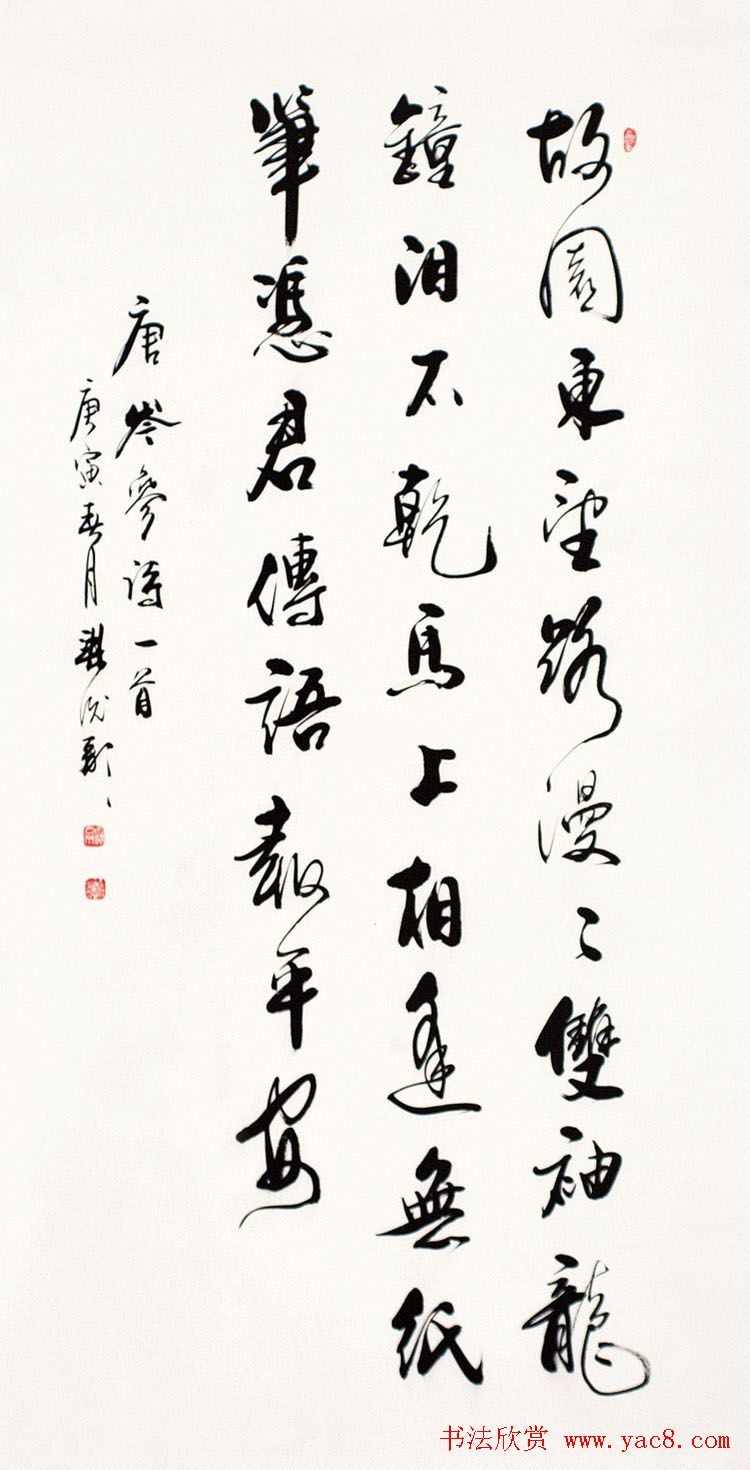 故園東望路漫〻雙袖龍
鐘泪不乾馬上相逢無紙
筆憑君傳語報平安
唐岑參詩一首
庚寅春月
书法欣赏 www.yac8.com